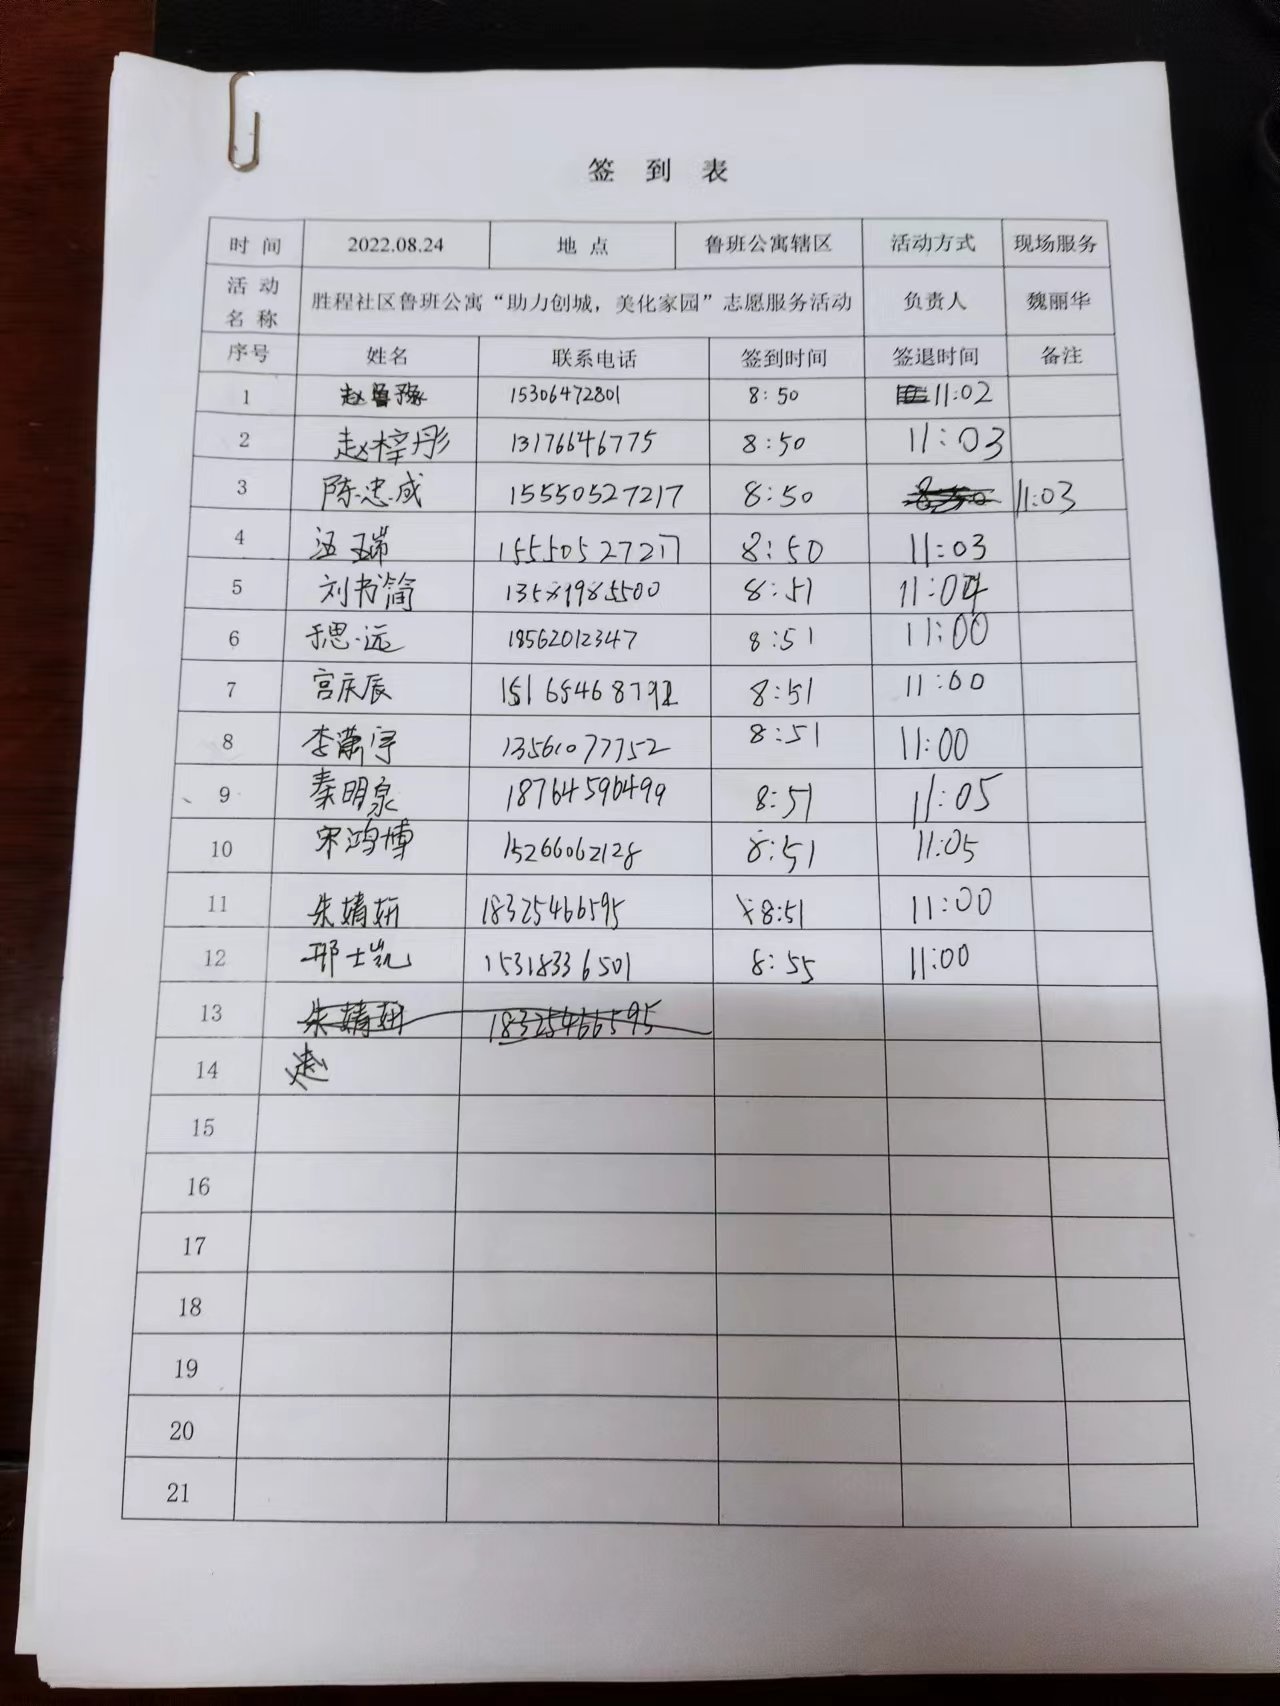 签 到 表
时 间 2022.08.24 地 点 鲁班公寓辖区 活动方式 现场服务
活 动 名 称 胜程社区鲁班公寓“助力创城，美化家园”志愿服务活动 负责人 魏丽华
序号 姓名 联系电话 签到时间 签退时间 备注
1 赵鲁豫 15306472801 8:50 11:02
2 赵梓彤 13176646775 8:50 11:03
3 陈忠成 15550527217 8:50 8:50 11:03
4 汪瑞 15550527217 8:50 11:03
5 刘书简 8:51 11:04
6 于思远 18562012347 8:51 11:00
7 宫庆辰 8:51 11:00
8 李萧宇 13561077752 8:51 11:00
9 秦明泉 18764590499 8:51 11:05
10 宋鸿博 15266062128 8:51 11:05
11 朱婧妍 18325466595 8:51 11:00
12 邢士凯 15318336501 8:55 11:00
13 朱婧妍 18325466595
14
15
16
17
18
19
20
21